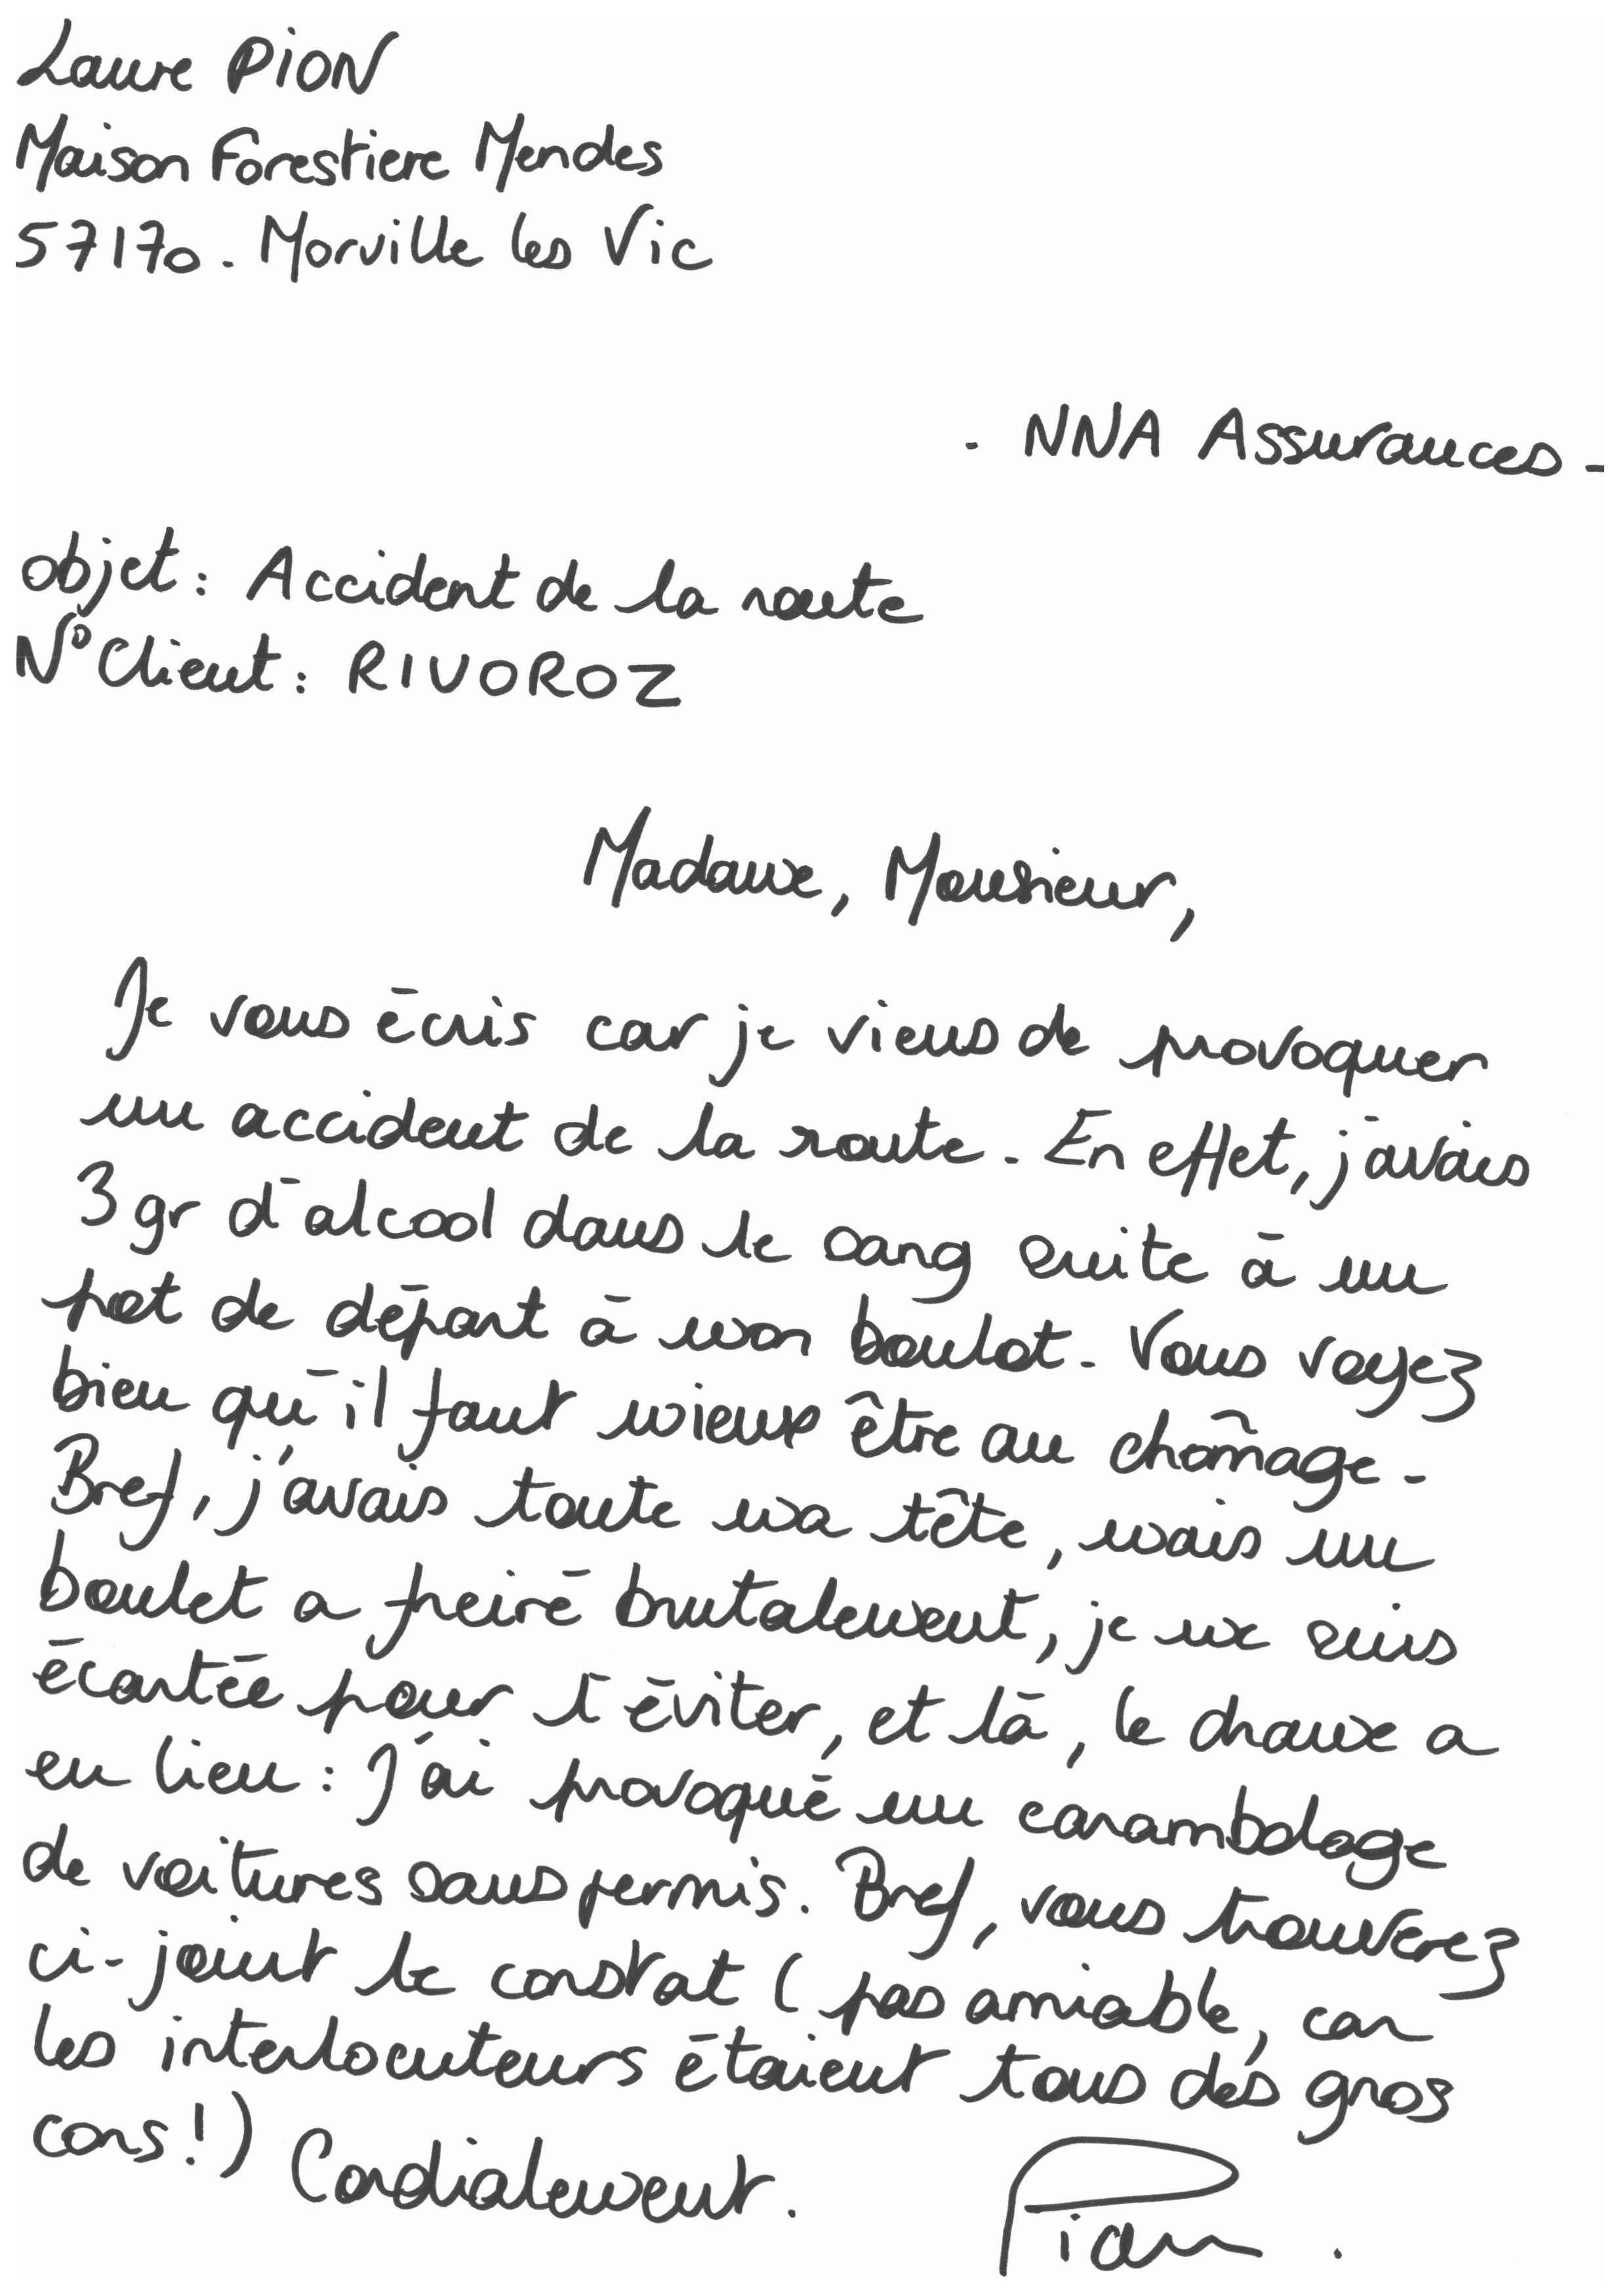 Laure PION
Maison Forestiere Mendes
57170. Morville les Vic
- NNA Assurances -
objet : Accident de la route
N° Client : RIVOROZ
Madame, Monsieur,
Je vous écris car je viens de provoquer
un accident de la route. En effet, j'avais
3 gr d'alcool dans le sang suite à un
pot de départ à mon boulot. Vous voyez
bien qu'il faut mieux être au chômage.
Bref, j'avais toute ma tête, mais un
boulet a freiné brutalement, je me suis
écartée pour l'éviter, et là, le drame a
eu lieu : J'ai provoqué un carambolage
de voitures sans permis. Bref, vous trouverez
ci-joint le constat (pas amiable, car
les interlocuteurs étaient tous des gros
cons!) Cordialement.
Pion.